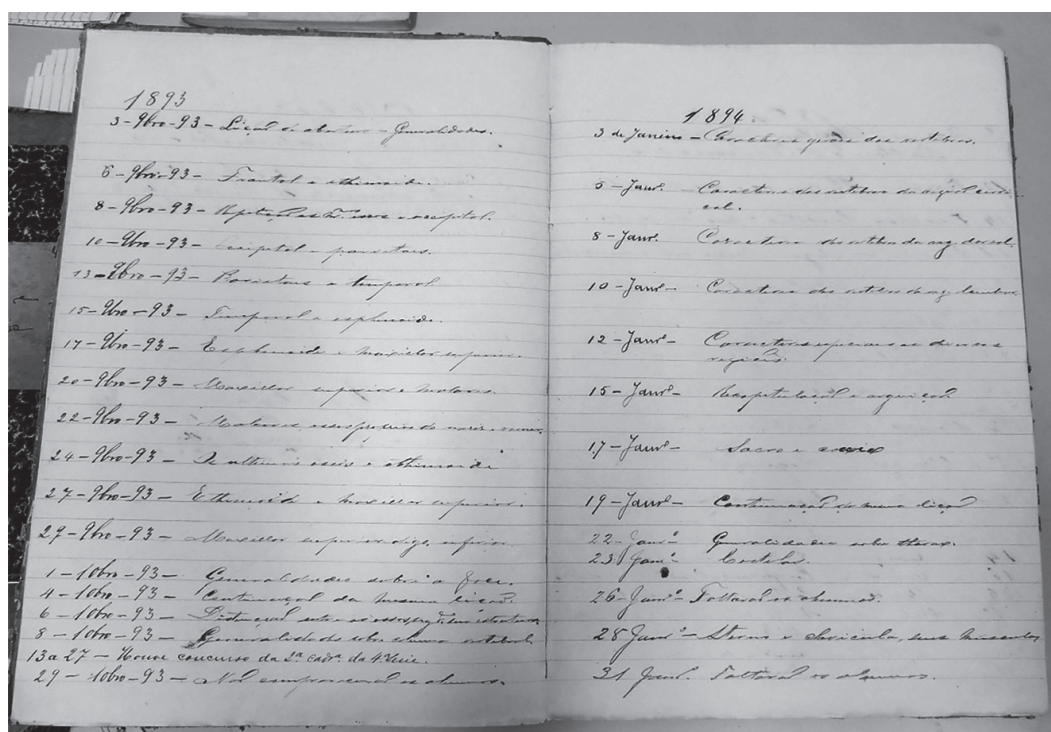 1893
3-9bro-93- Lição de abertura - Generalidades.
6-9bro-93- Frontal e ethmoide.
8-9bro-93- occipital.
10-9bro-93- Occipital e parietaes.
13-9bro-93- Parietaes e temporal
15-9bro-93- Temporal e esphenoide.
17-9bro-93- Esphenoide e maxillar superior.
20-9bro-93- Maxillar superior e molares.
22-9bro-93- Molares ossos proprios do nariz e vomer.
24-9bro-93- ethmoide
27-9bro-93- Ethmoide e maxillar superior.
29-9bro-93- Maxillar superior inferior.
1-10bro-93- Generalidades sobre a face.
4-10bro-93- Continuação da mesma lição.
6-10bro-93-
8-10bro-93- Generalidades sobre columna vertebral.
13 a 27- Houve concurso da 2ª cadrª da 4ª serie.
29-10bro-93- Não compareceram os alumnos.
1894
3 de Janeiro - Caracteres geraes das vertebras.
5- Janrº Caracteres das vertebras da região cervi-
cal.
8- Janrº Caracteres das vertebras da reg. dorsal.
10- Janrº- Caracteres das vertebras da reg. lombar.
12- Janrº- Caracteres
regiões.
15- Janrº- Recapitulação e arguição
17- Janrº- Sacro e coccix
19- Janrº- Continuação da mesma lição
22- Janrº- Generalidades sobre thorax.
23 Janrº- Costelas.
26- Janrº- Faltaram os alumnos.
28 Janrº- Sterno e clavicula, seus musculos
31 Janrº. Faltaram os alumnos.